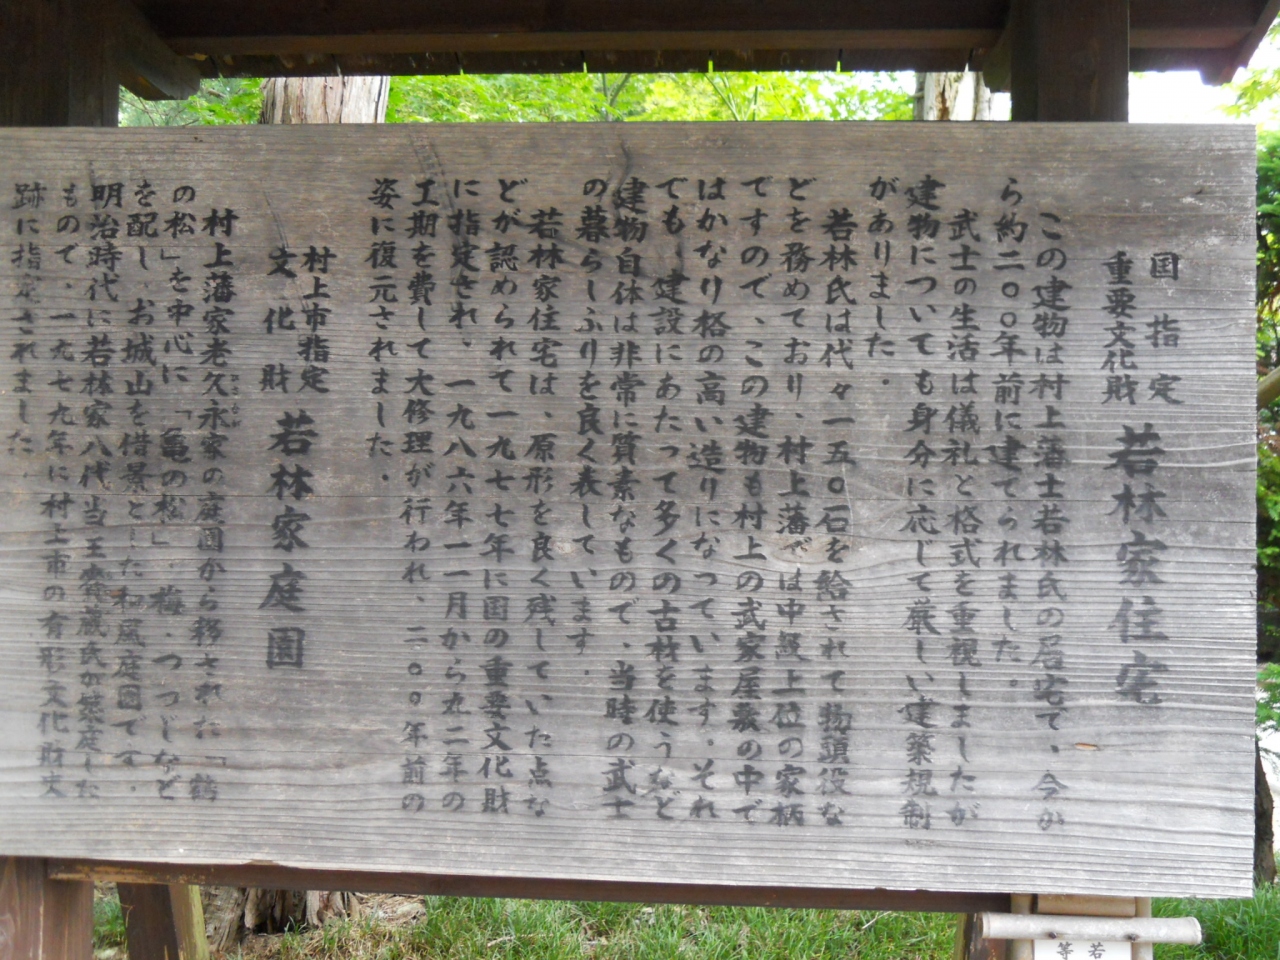 国指定
重要文化財
若林家住宅
この建物は村上藩士若林氏の居宅で、今か
ら約二〇〇年前に建てられました。
武士の生活は儀礼と格式を重視しましたが
建物についても身分に応じて厳しい建築規制
がありました。
若林氏は代々一五〇石を給されて物頭役な
どを務めており、村上藩では中級上位の家柄
ですので、この建物も村上の武家屋敷の中で
はかなり格の高い造りになっています。それ
でも、建設にあたって多くの古材を使うなど
建物自体は非常に質素なもので、当時の武士
の暮らしぶりを良く表しています。
若林家住宅は、原形を良く残していた点な
どが認められて一九七七年に国の重要文化財
に指定され、一九八六年一一月から九二年の
工期を費して大修理が行われ、二〇〇年前の
姿に復元されました。
村上市指定
文化財
若林家庭園
村上藩家老久永家の庭園から移された「鶴
の松」を中心に「亀の松」、梅、つつじなど
を配し、お城山を借景とした和風庭園です。
明治時代に若林家八代当主齋蔵氏が築庭した
もので、一九七九年に村上市の有形文化財史
跡に指定されました。
若
等